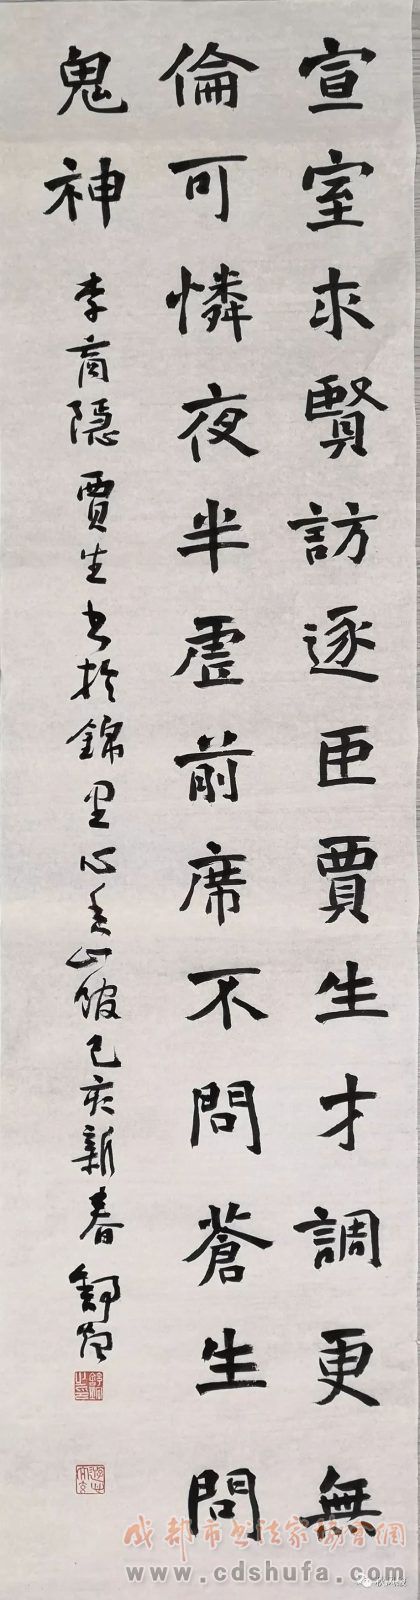 宣室求賢訪逐臣賈生才調更無
倫可憐夜半虛前席不問蒼生問
鬼神
李商隐賈生书於錦里心香山館己亥新春舒炯
成都市书法家协会網
www.cdshufa.com